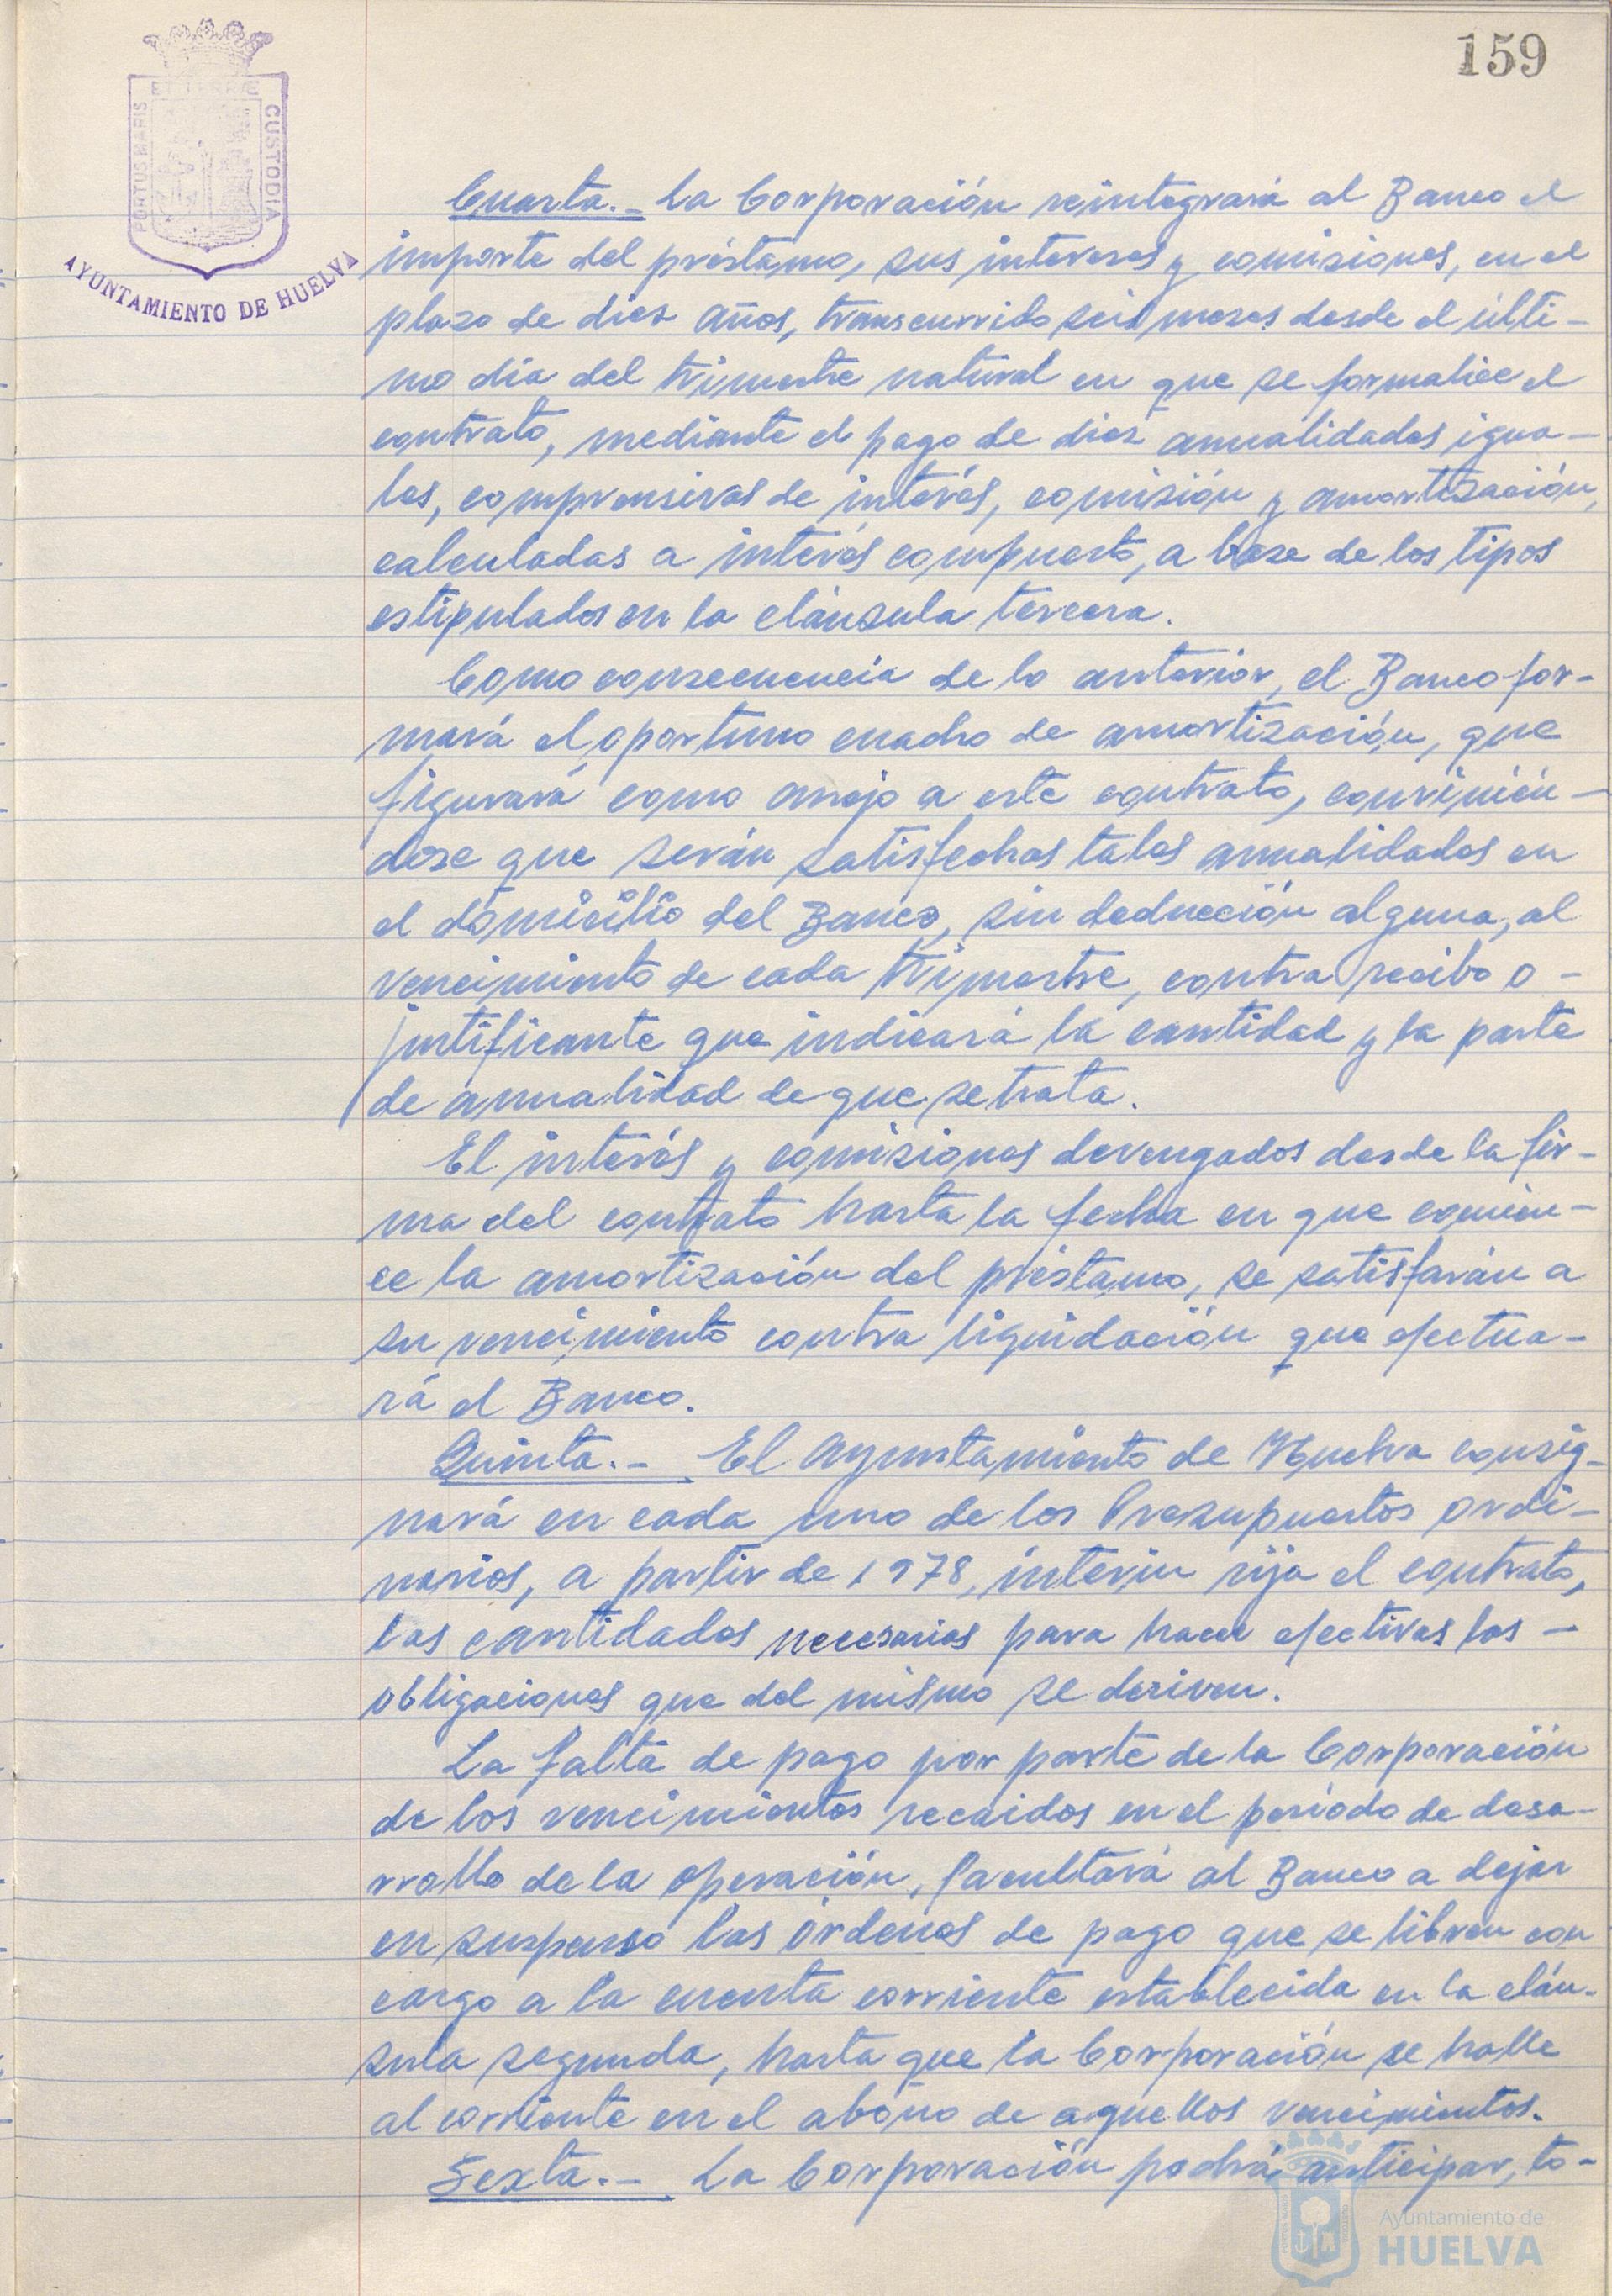 159
ET TERRÆ
PORTUS MARIS
CUSTODIA
AYUNTAMIENTO DE HUELVA
Cuarta.- La Corporación reintegrará al Banco el
importe del préstamo, sus intereses y comisiones, en el
plazo de diez años, transcurrido seis meses desde el últi-
mo día del trimestre natural en que se formalice el
contrato, mediante el pago de diez anualidades igua-
les, comprensivas de interés, comisión y amortización,
calculadas a interés compuesto, a base de los tipos
estipulados en la cláusula tercera.
Como consecuencia de lo anterior, el Banco for-
mará el oportuno cuadro de amortización, que
figurará como anejo a este contrato, convinién-
dose que serán satisfechas tales anualidades en
el domicilio del Banco, sin deducción alguna, al
vencimiento de cada trimestre, contra recibo o -
justificante que indicará la cantidad y la parte
de anualidad de que se trata.
El interés y comisiones devengados desde la fir-
ma del contrato hasta la fecha en que comien-
ce la amortización del préstamo, se satisfarán a
su vencimiento contra liquidación que efectua-
rá el Banco.
Quinta.- El Ayuntamiento de Huelva consig-
nará en cada uno de los Presupuestos ordi-
narios, a partir de 1978, interin rija el contrato,
las cantidades necesarias para hacer efectivas las -
obligaciones que del mismo se deriven.
La falta de pago por parte de la Corporación
de los vencimientos recaidos en el período de desa-
rrollo de la operación, facultará al Banco a dejar
en suspenso las órdenes de pago que se libren con
cargo a la cuenta corriente establecida en la cláu-
sula segunda, hasta que la Corporación se halle
al corriente en el abono de aquellos vencimientos.
Sexta.- La Corporación podrá anticipar, to-
Ayuntamiento de
HUELVA